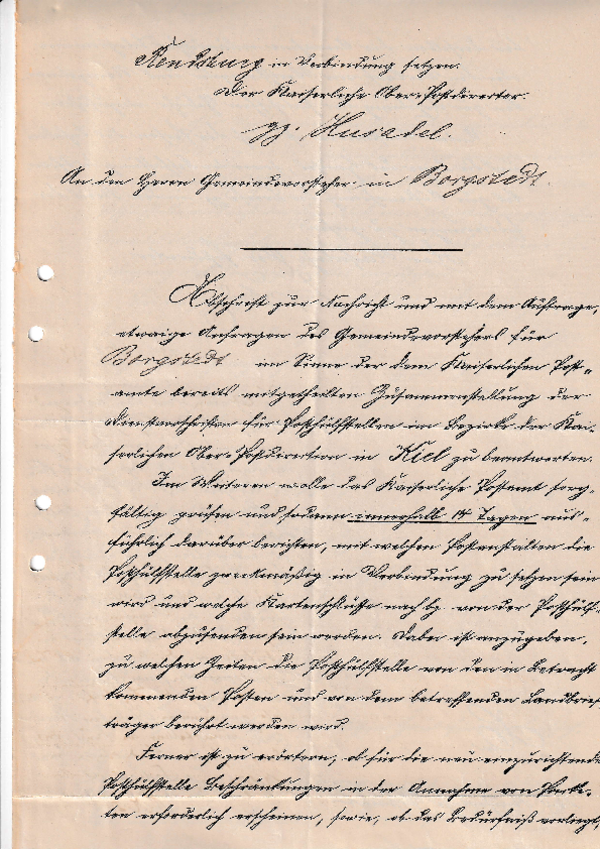 Rendsburg in Verbindung setzen.
Der Kaiserliche Ober-Postdirector.
gz. Husadel.
An den Herrn Gemeindevorsteher in Borgstedt.
Abschrift zur Nachricht und mit dem Auftrage,
etwaige Anfragen des Gemeindevorstehers für
Borgstedt im Sinne der dem Kaiserlichen Post-
amte bereits mitgetheilten Zusammenstellung der
Dienstvorschriften für Posthülfstellen im Bezirke der Kai-
serlichen Ober-Postdirection in Kiel zu beantworten.
Im Weiteren wolle das Kaiserliche Postamt sorg-
fältig prüfen und sodann innerhalb 14 Tagen aus-
führlich darüber berichten, mit welchen Postanstalten die
Posthülfstelle zweckmäßig in Verbindung zu setzen sein
wird und welche Kartenschlüsse nach bz. von der Posthülf-
stelle abzusenden sein werden. Dabei ist anzugeben,
zu welchen Zeiten die Posthülfstelle von den in Betracht
kommenden Posten und von dem betreffenden Landbrief-
träger berührt werden wird.
Ferner ist zu erörtern, ob für die neu einzurichtende
Posthülfstelle Beschränkungen in der Annahme von Packe-
ten erforderlich erscheinen, sowie, ob das Bedürfniß vorliegt,